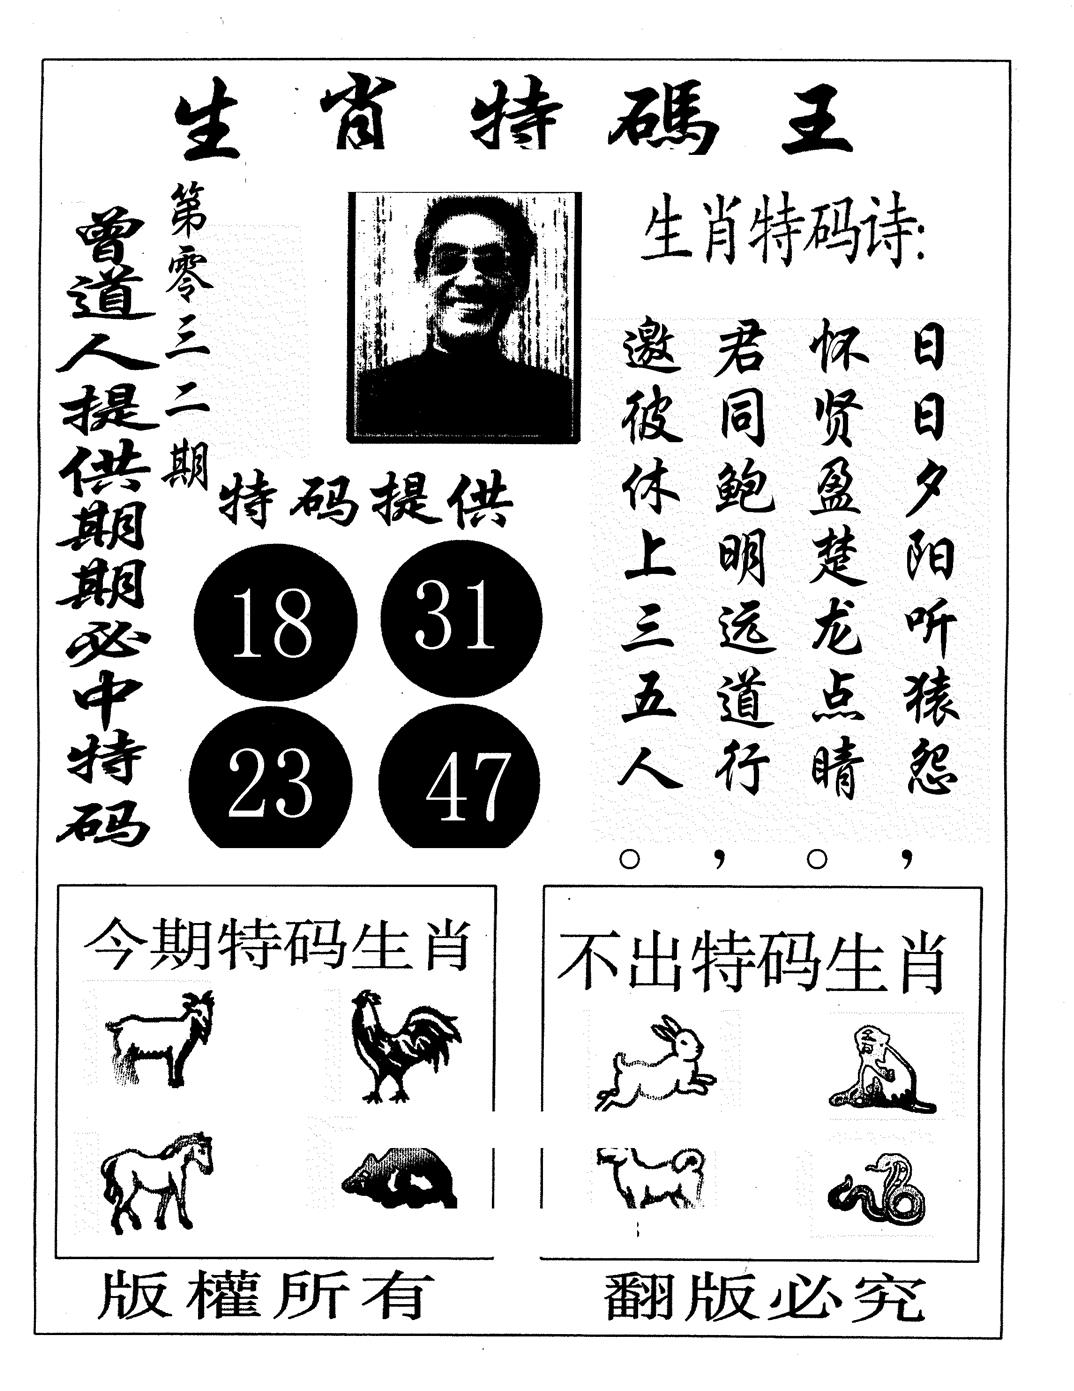 生肖特碼王
曾道人提供期期必中特码
第零三二期
特码提供
18
31
23
47
生肖特码诗:
日日夕阳听猿怨,
怀贤盈楚龙点晴。
君同鲍明远道行,
邀彼休上三五人。
今期特码生肖
不出特码生肖
版權所有
翻版必究